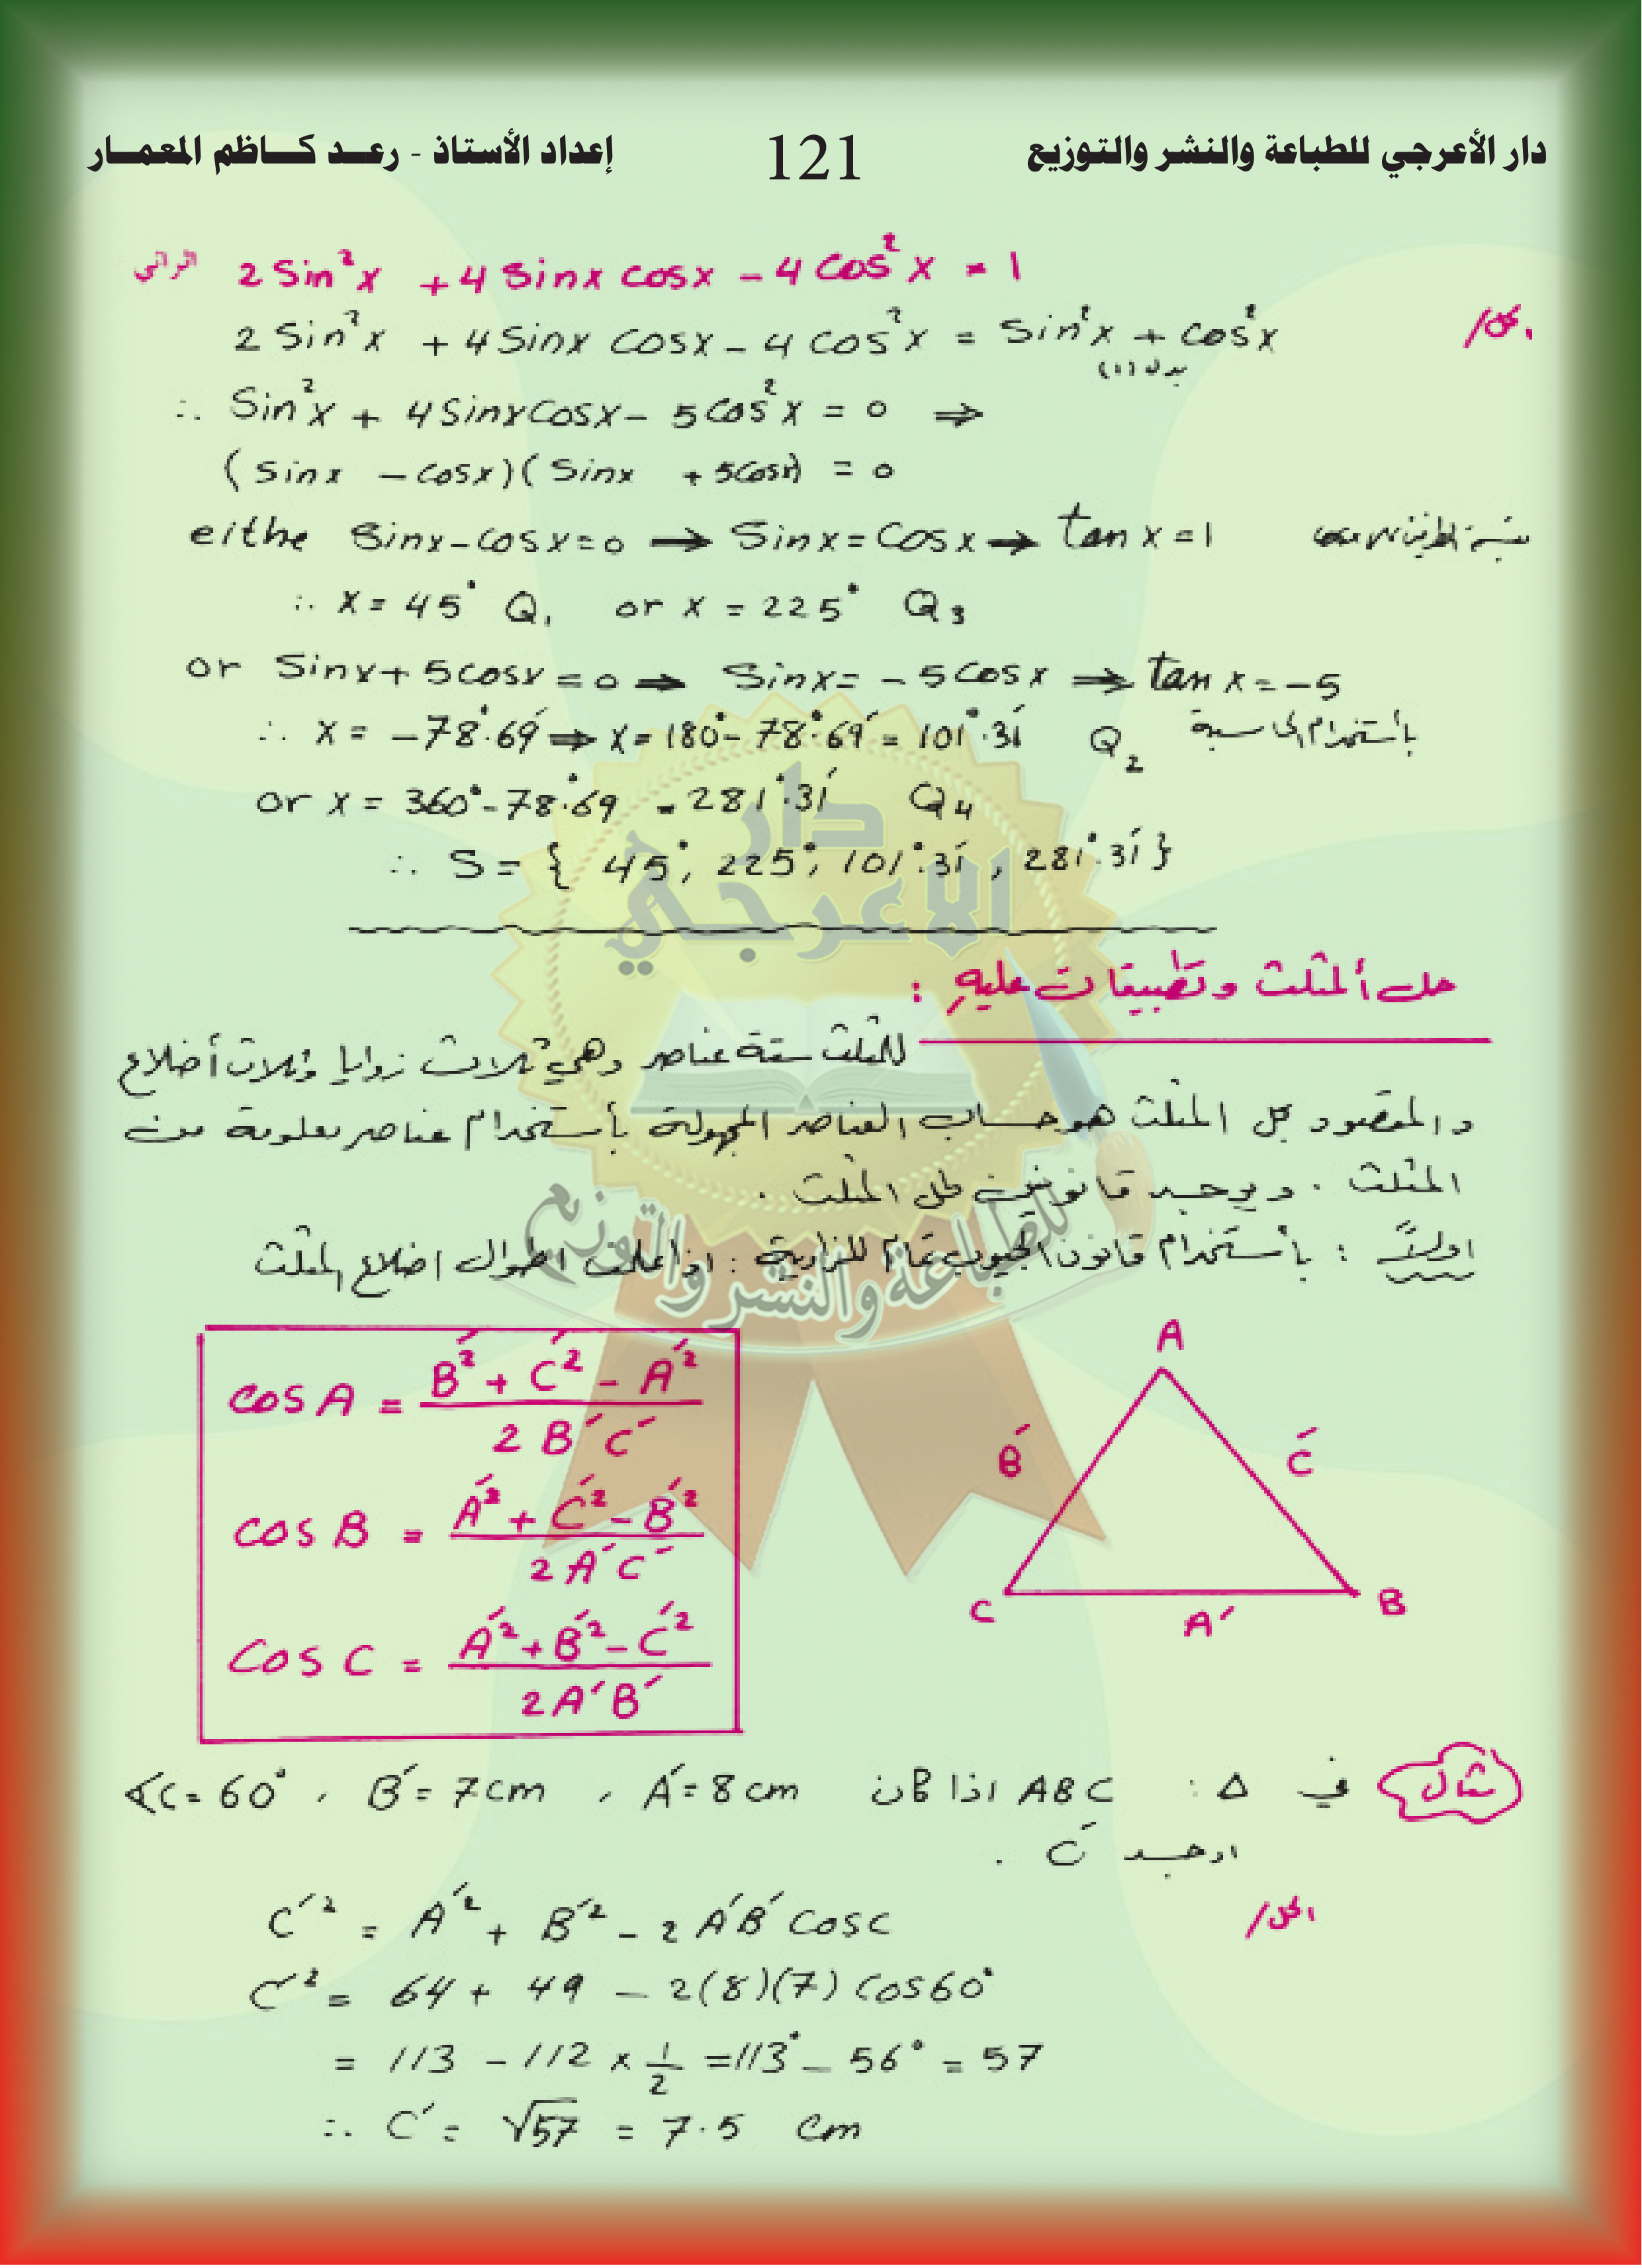 دار الأعرجي للطباعة والنشر والتوزيع 121 إعداد الأستاذ - رعــد كــاظم المعمــار
2 Sin²x + 4 Sinx cosx – 4 cos²x = 1
2 Sin²x + 4 Sinx cosx – 4 cos²x = Sin²x + cos²x
بدل (1)
∴ Sin²x + 4 Sinx cosx – 5 cos²x = 0 ⇒
(Sinx – cosx)(Sinx + 5cosx) = 0
eithe Sinx – cosx = 0 → Sinx = cosx → tan x = 1
∴ x = 45° Q₁ or x = 225° Q₃
or Sinx + 5cosx = 0 → Sinx = – 5 cosx → tan x = – 5
∴ x = – 78°.69′ ⇒ x = 180° – 78°.69′ = 101°.31′ Q₂ بأستخدام الحاسبة
or x = 360° – 78°.69 = 281°.31′ Q₄
∴ S = { 45°, 225°, 101°.31′, 281°.31′ }
دار
الاعرجي
حل ألمثلث وتطبيقات عليه :
للمثلث ستة عناصر وهي ثلاث زوايا وثلاث أضلاع
والمقصود بحل المثلث هو حساب العناصر المجهولة بأستخدام عناصر معلومة من
المثلث . ويوجد قانونين لحل المثلث .
للطباعة والنشر والتوزيع
اولاً : بأستخدام قانون الجيوب تمام للزاوية : اذا علمت اطوال اضلاع المثلث
cos A = (B′² + C′² – A′²) / 2 B′ C′
cos B = (A′² + C′² – B′²) / 2 A′ C′
cos C = (A′² + B′² – C′²) / 2 A′ B′
A
B′ C′
C A′ B
مثال في Δ : ABC اذا كان A′ = 8 cm , B′ = 7 cm , ∢C = 60°
اوجد C′ .
الحل /
C′² = A′² + B′² – 2 A′B′ cos C
C′² = 64 + 49 – 2(8)(7) cos 60°
= 113 – 112 × 1/2 = 113° – 56° = 57
∴ C′ = √57 = 7.5 cm